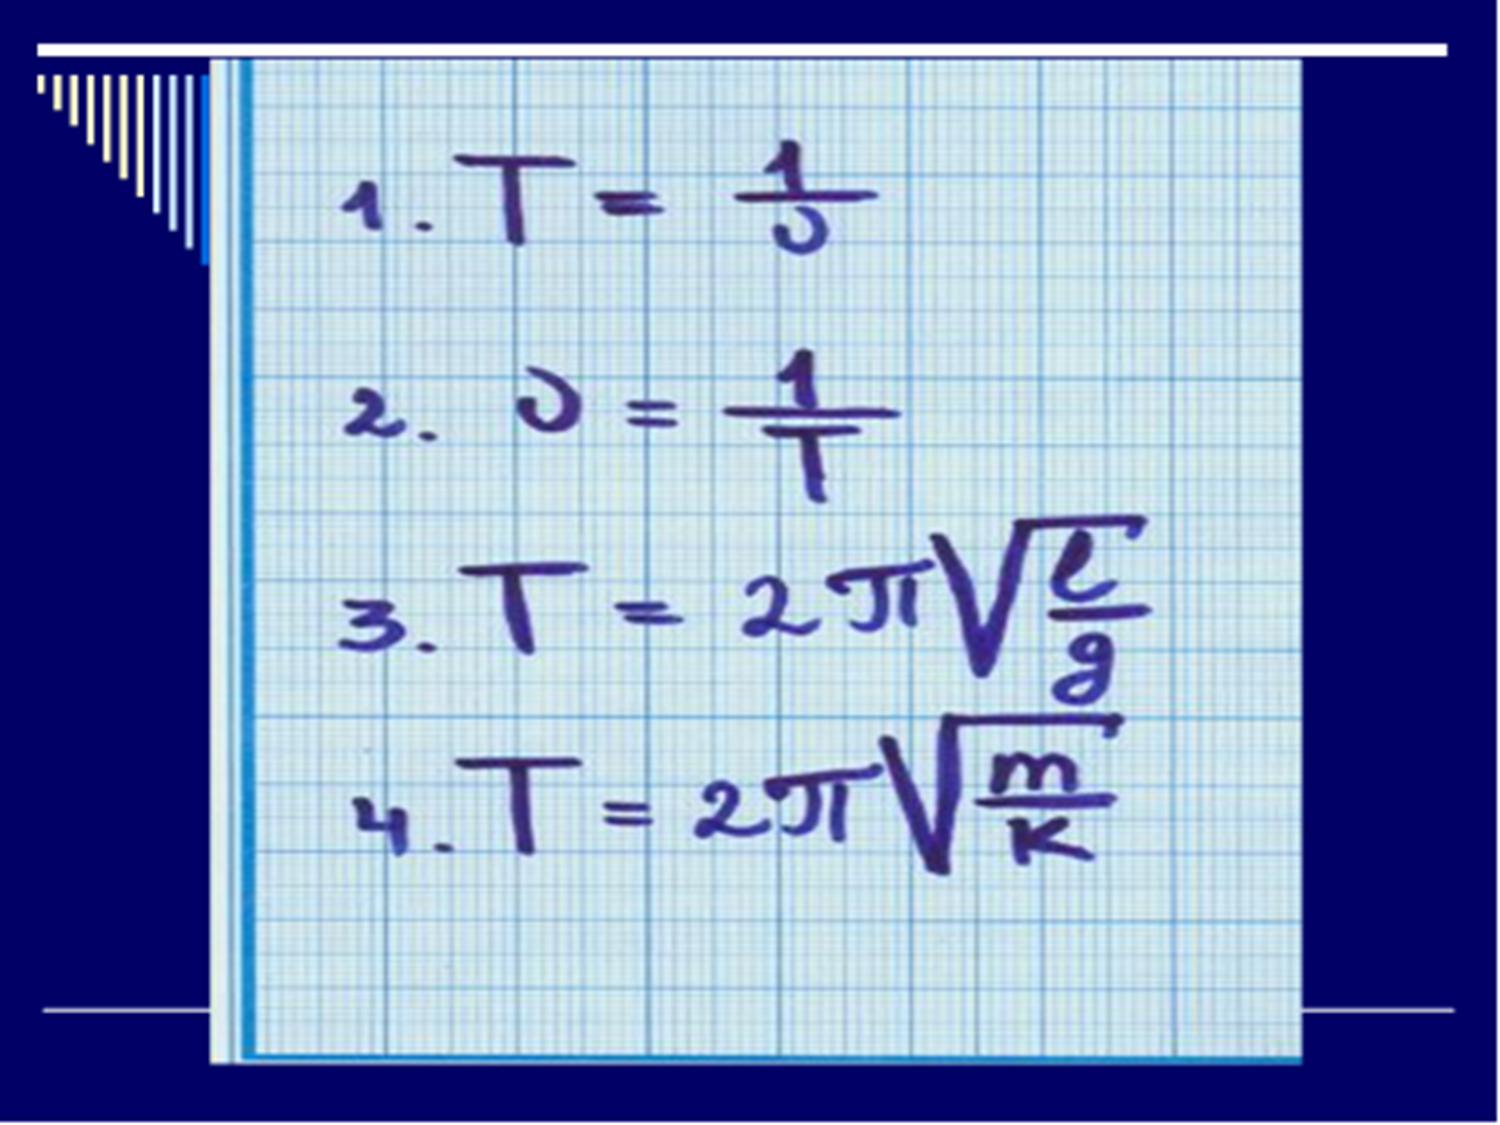 1. T = 1/υ
2. υ = 1/T
3. T = 2π√(l/g)
4. T = 2π√(m/K)